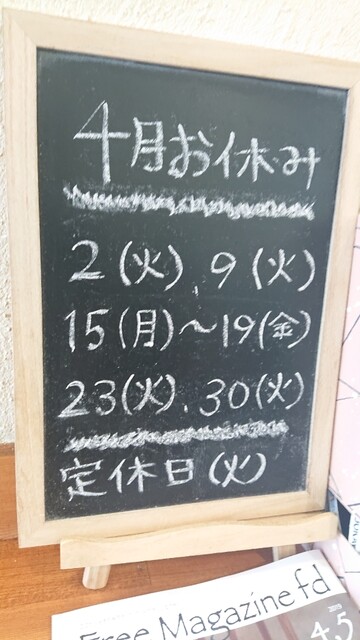 4月お休み
2(火)、9(火)
15(月)〜19(金)
23(火)、30(火)
定休日(火)
Free Magazine fd
4-5